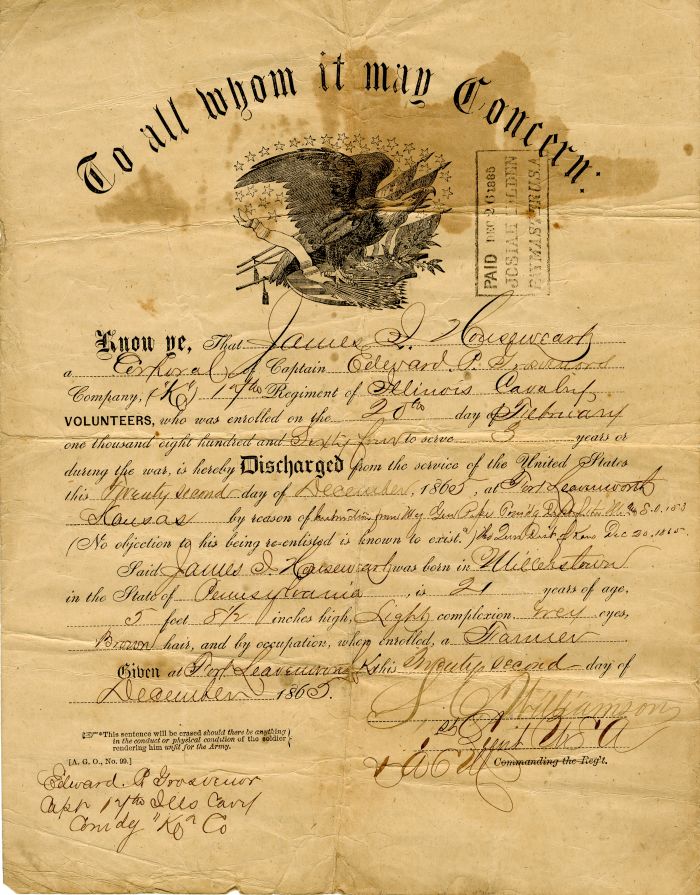 To all whom it may Concern:
PAID DEC 26 1865
JOSIAH
PAYMASTER U.S.A.
Know ye, That James I. Houseweart
a Corporal of Captain Edward P. Grosvenors
Company, ("K") 17th Regiment of Illinois Cavalry
VOLUNTEERS, who was enrolled on the 20th day of February
one thousand eight hundred and Sixty four to serve 3 years or
during the war, is hereby Discharged from the service of the United States
this Twenty second day of December, 1865, at Fort Leavenworth
Kansas by reason of instructions from Maj Genl Pope
(No objection to his being re-enlisted is known to exist.*) Dec 20, 1865.
Said James I. Houseweart was born in Millerstown
in the State of Pennsylvania, is 21 years of age,
5 feet 8½ inches high, Light complexion, Grey eyes,
Brown hair, and by occupation, when enrolled, a Farmer
Given at Fort Leavenworth Ks this Twenty second day of
December 1865.
Williamson
*This sentence will be erased should there be anything
in the conduct or physical condition of the soldier
rendering him unfit for the Army.
1st Lieut U S A
[A. G. O., No. 99.]
& A C M Commanding the Reg't.
Edward P. Grosvenor
Capt 17th Ills Cavy
Comdg "K" Co